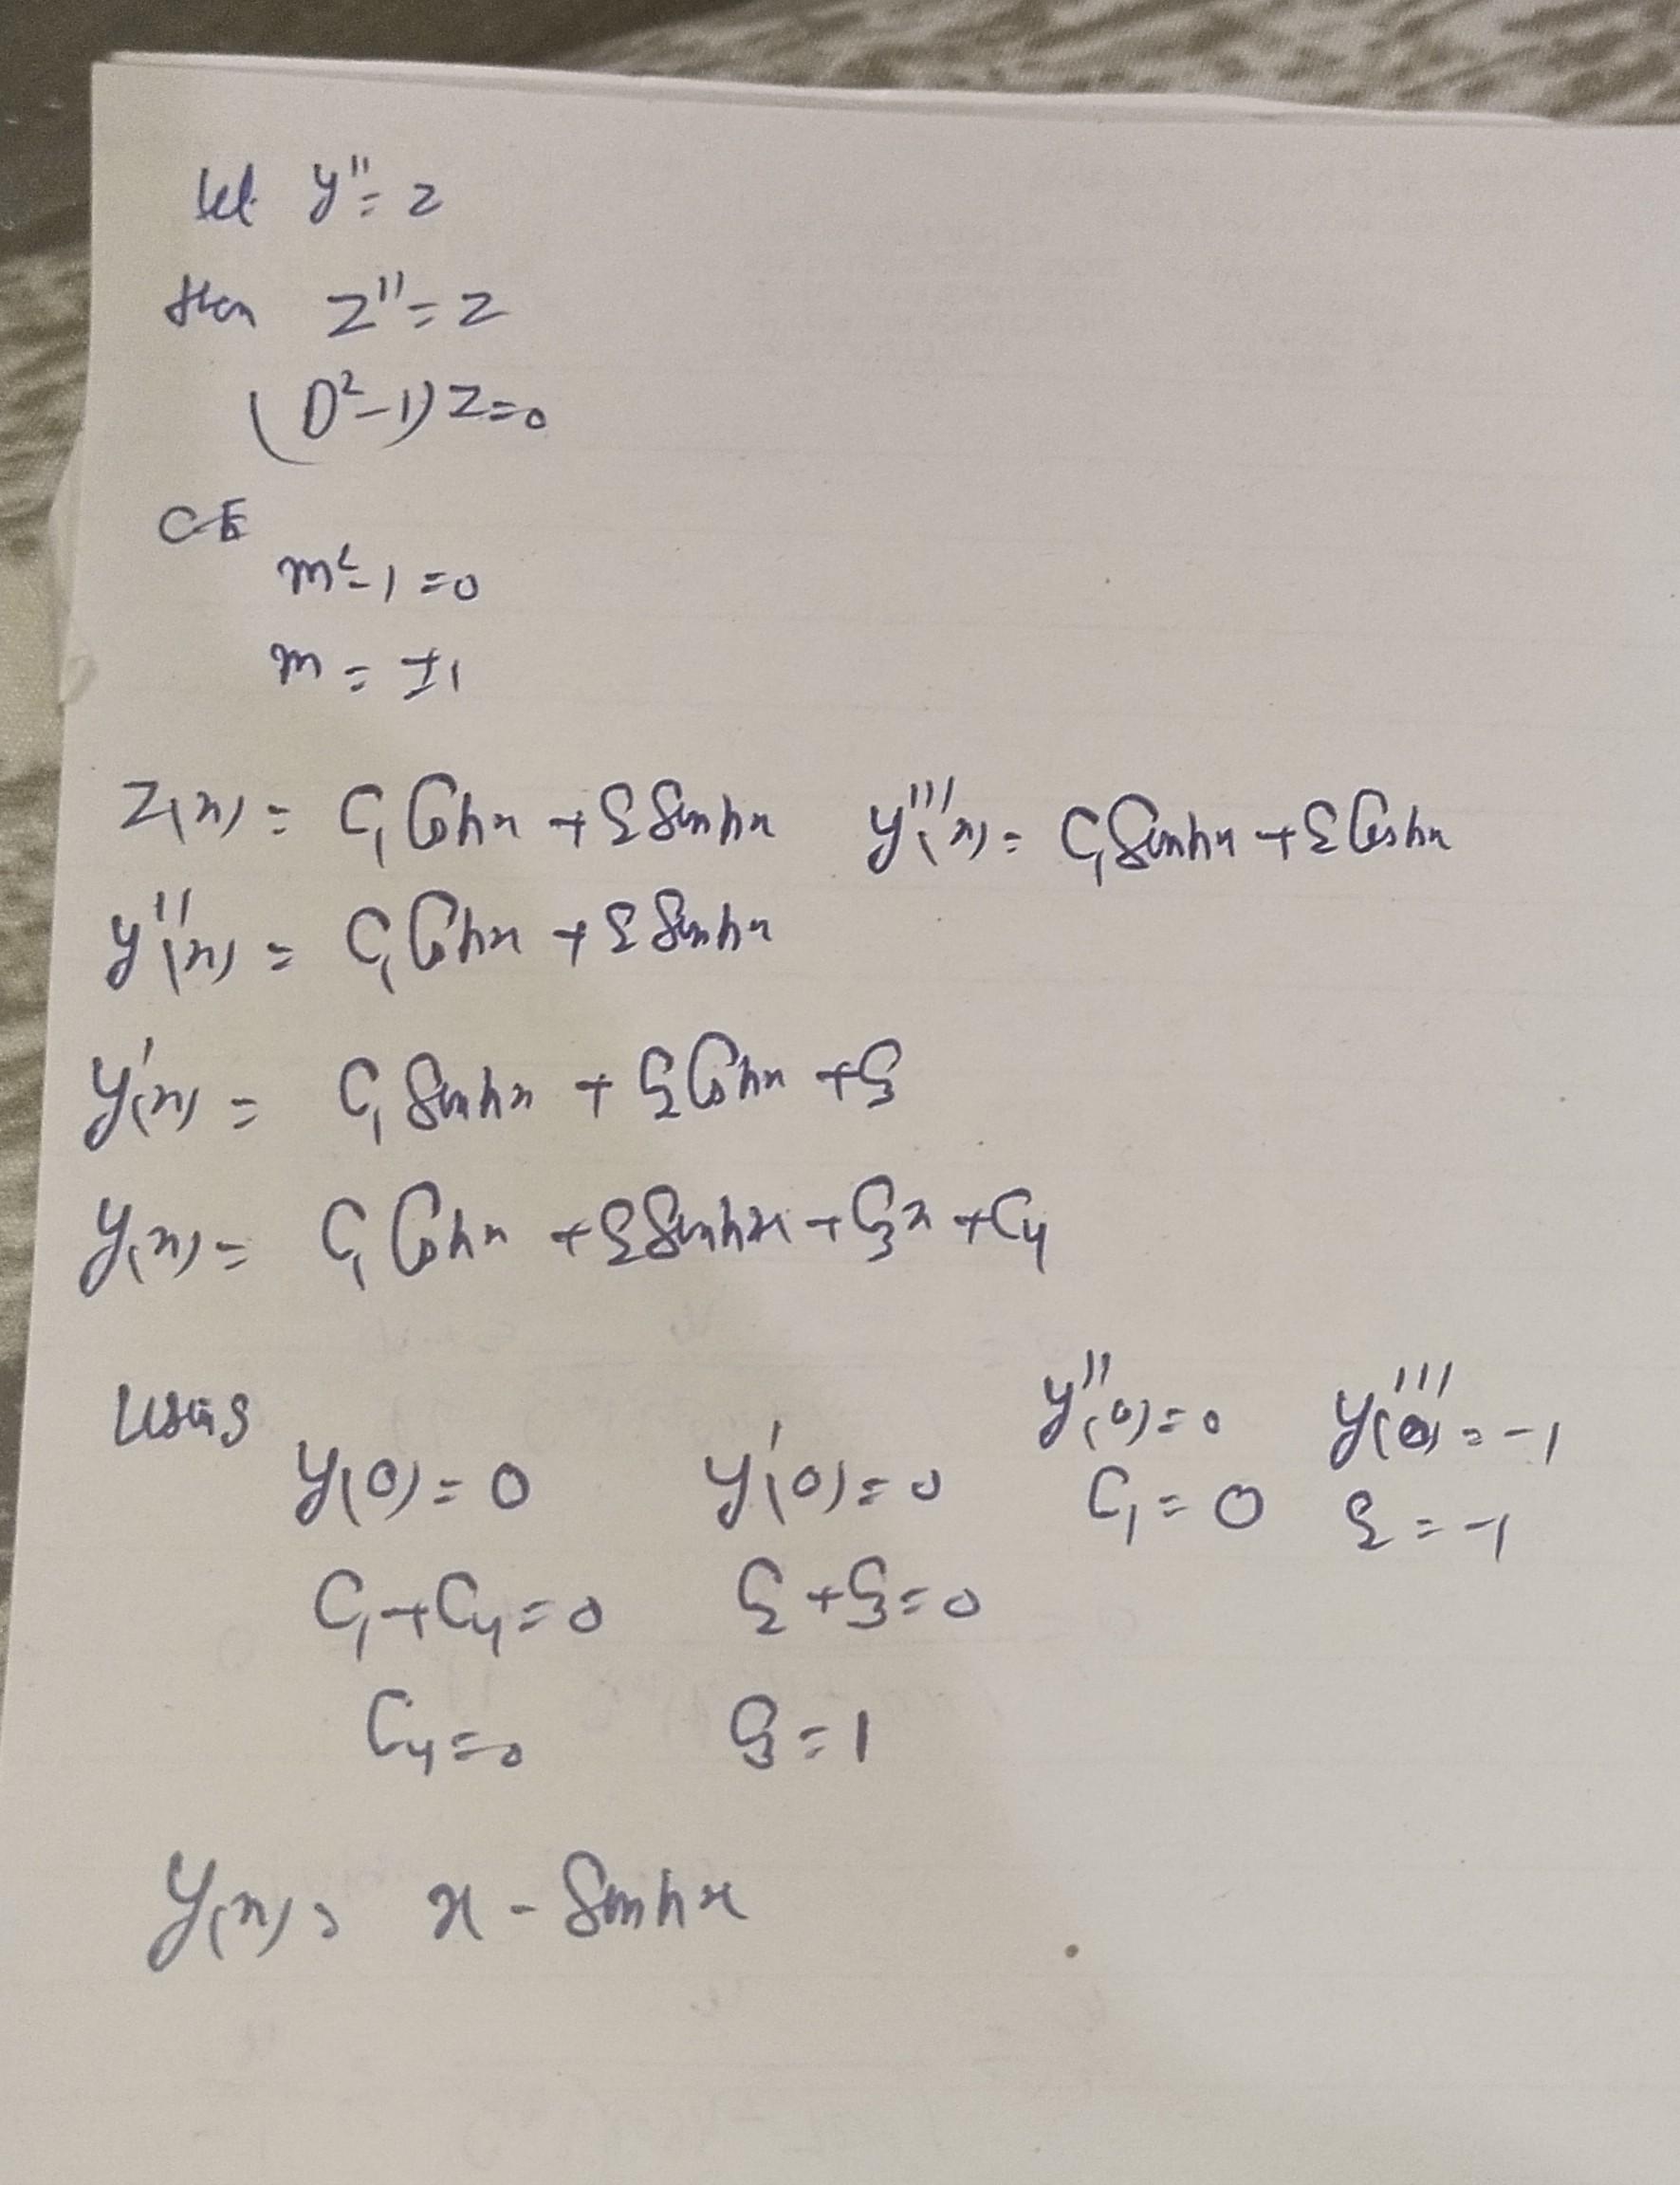 let y'' = z
then z'' = z
(D² - 1) z = 0
CE
m² - 1 = 0
m = ±1
z(x) = C₁ Coshx + C₂ Sinhx    y'''(x) = C₁ Sinhx + C₂ Coshx
y''(x) = C₁ Coshx + C₂ Sinhx
y'(x) = C₁ Sinhx + C₂ Coshx + C₃
y(x) = C₁ Coshx + C₂ Sinhx + C₃x + C₄
Using
y(0) = 0    y'(0) = 0    y''(0) = 0    y'''(0) = -1
C₁ + C₄ = 0    C₂ + C₃ = 0    C₁ = 0    C₂ = -1
C₄ = 0    C₃ = 1
y(x) = x - Sinhx